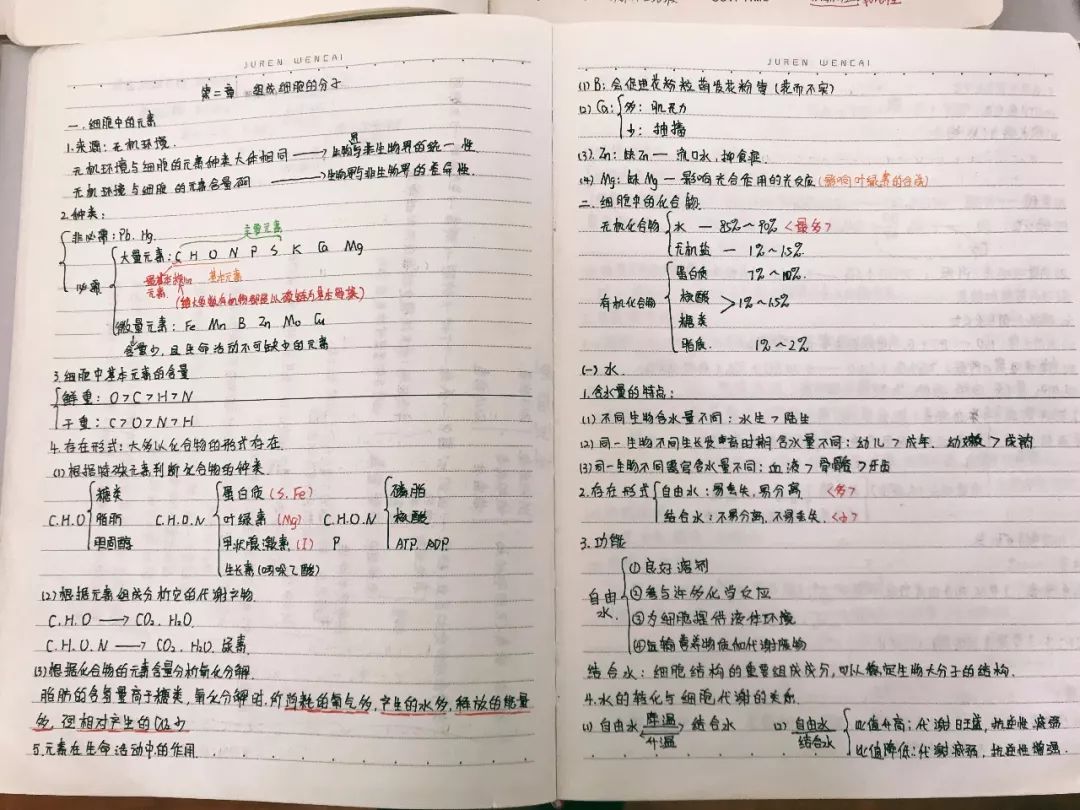 JUREN WENCAI
第二章 组成细胞的分子
一.细胞中的元素
1.来源:无机环境.
无机环境与细胞的元素种类大体相同 → 生物界与非生物界的统一性
无机环境与细胞的元素含量不同 → 生物界与非生物界的差异性.
2.种类:
非必需:Pb. Hg.
主要元素
必需
大量元素:C H O N P S K Ca Mg
最基本
元素
基本元素
(绝大多数有机物都是以碳链为基本骨架)
微量元素:Fe Mn B Zn Mo Cu
含量少,且生命活动不可缺少的元素
3.细胞中基本元素的含量
鲜重:O>C>H>N
干重:C>O>N>H
4.存在形式:大多以化合物的形式存在.
(1)根据特殊元素判断化合物的种类
C.H.O 糖类 脂肪 胆固醇
C.H.O.N 蛋白质(S.Fe) 叶绿素(Mg) 甲状腺激素(I) 生长素(吲哚乙酸)
C.H.O.N P 磷脂 核酸 ATP. ADP.
(2)根据元素组成分析它的代谢产物.
C.H.O → CO2. H2O.
C.H.O.N → CO2. H2O. 尿素
(3)根据化合物的元素含量分析氧化分解.
脂肪的含氢量高于糖类,氧化分解时,所消耗的氧气多,产生的水多,释放的能量
多,但相对产生的CO2少
5.元素在生命活动中的作用
JUREN WENCAI
(1) B:会促进花粉粒萌发花粉管(花而不实)
(2) Ca:多:肌无力
少:抽搐
(3). Zn:缺Zn— 流口水,抑食症
(4) Mg:缺Mg—影响光合作用的光反应(影响叶绿素的合成)
二.细胞中的化合物.
无机化合物
水 — 85%~90% <最多>
无机盐 — 1%~1.5%
有机化合物
蛋白质 7%~10%.
核酸
糖类
>1%~1.5%
脂质. 1%~2%
(一)水.
1.含水量的特点:
(1)不同生物含水量不同:水生>陆生
(2)同一生物不同生长发育时期含水量不同:幼儿>成年. 幼嫩>成熟
(3)同一生物不同器官含水量不同:血液>骨骼>牙齿
2.存在形式
自由水:易丢失,易分离. <多>
结合水:不易分离,不易丢失.<少>
3.功能
自由水.
①良好溶剂
②参与许多化学反应
③为细胞提供液体环境
④运输营养物质和代谢废物
结合水:细胞结构的重要组成成分,可以稳定生物大分子的结构.
4.水的转化与细胞代谢的关系.
(1)自由水 降温 升温 结合水
(2) 自由水
结合水
比值升高:代谢旺盛,抗逆性减弱
比值降低:代谢减弱,抗逆性增强.